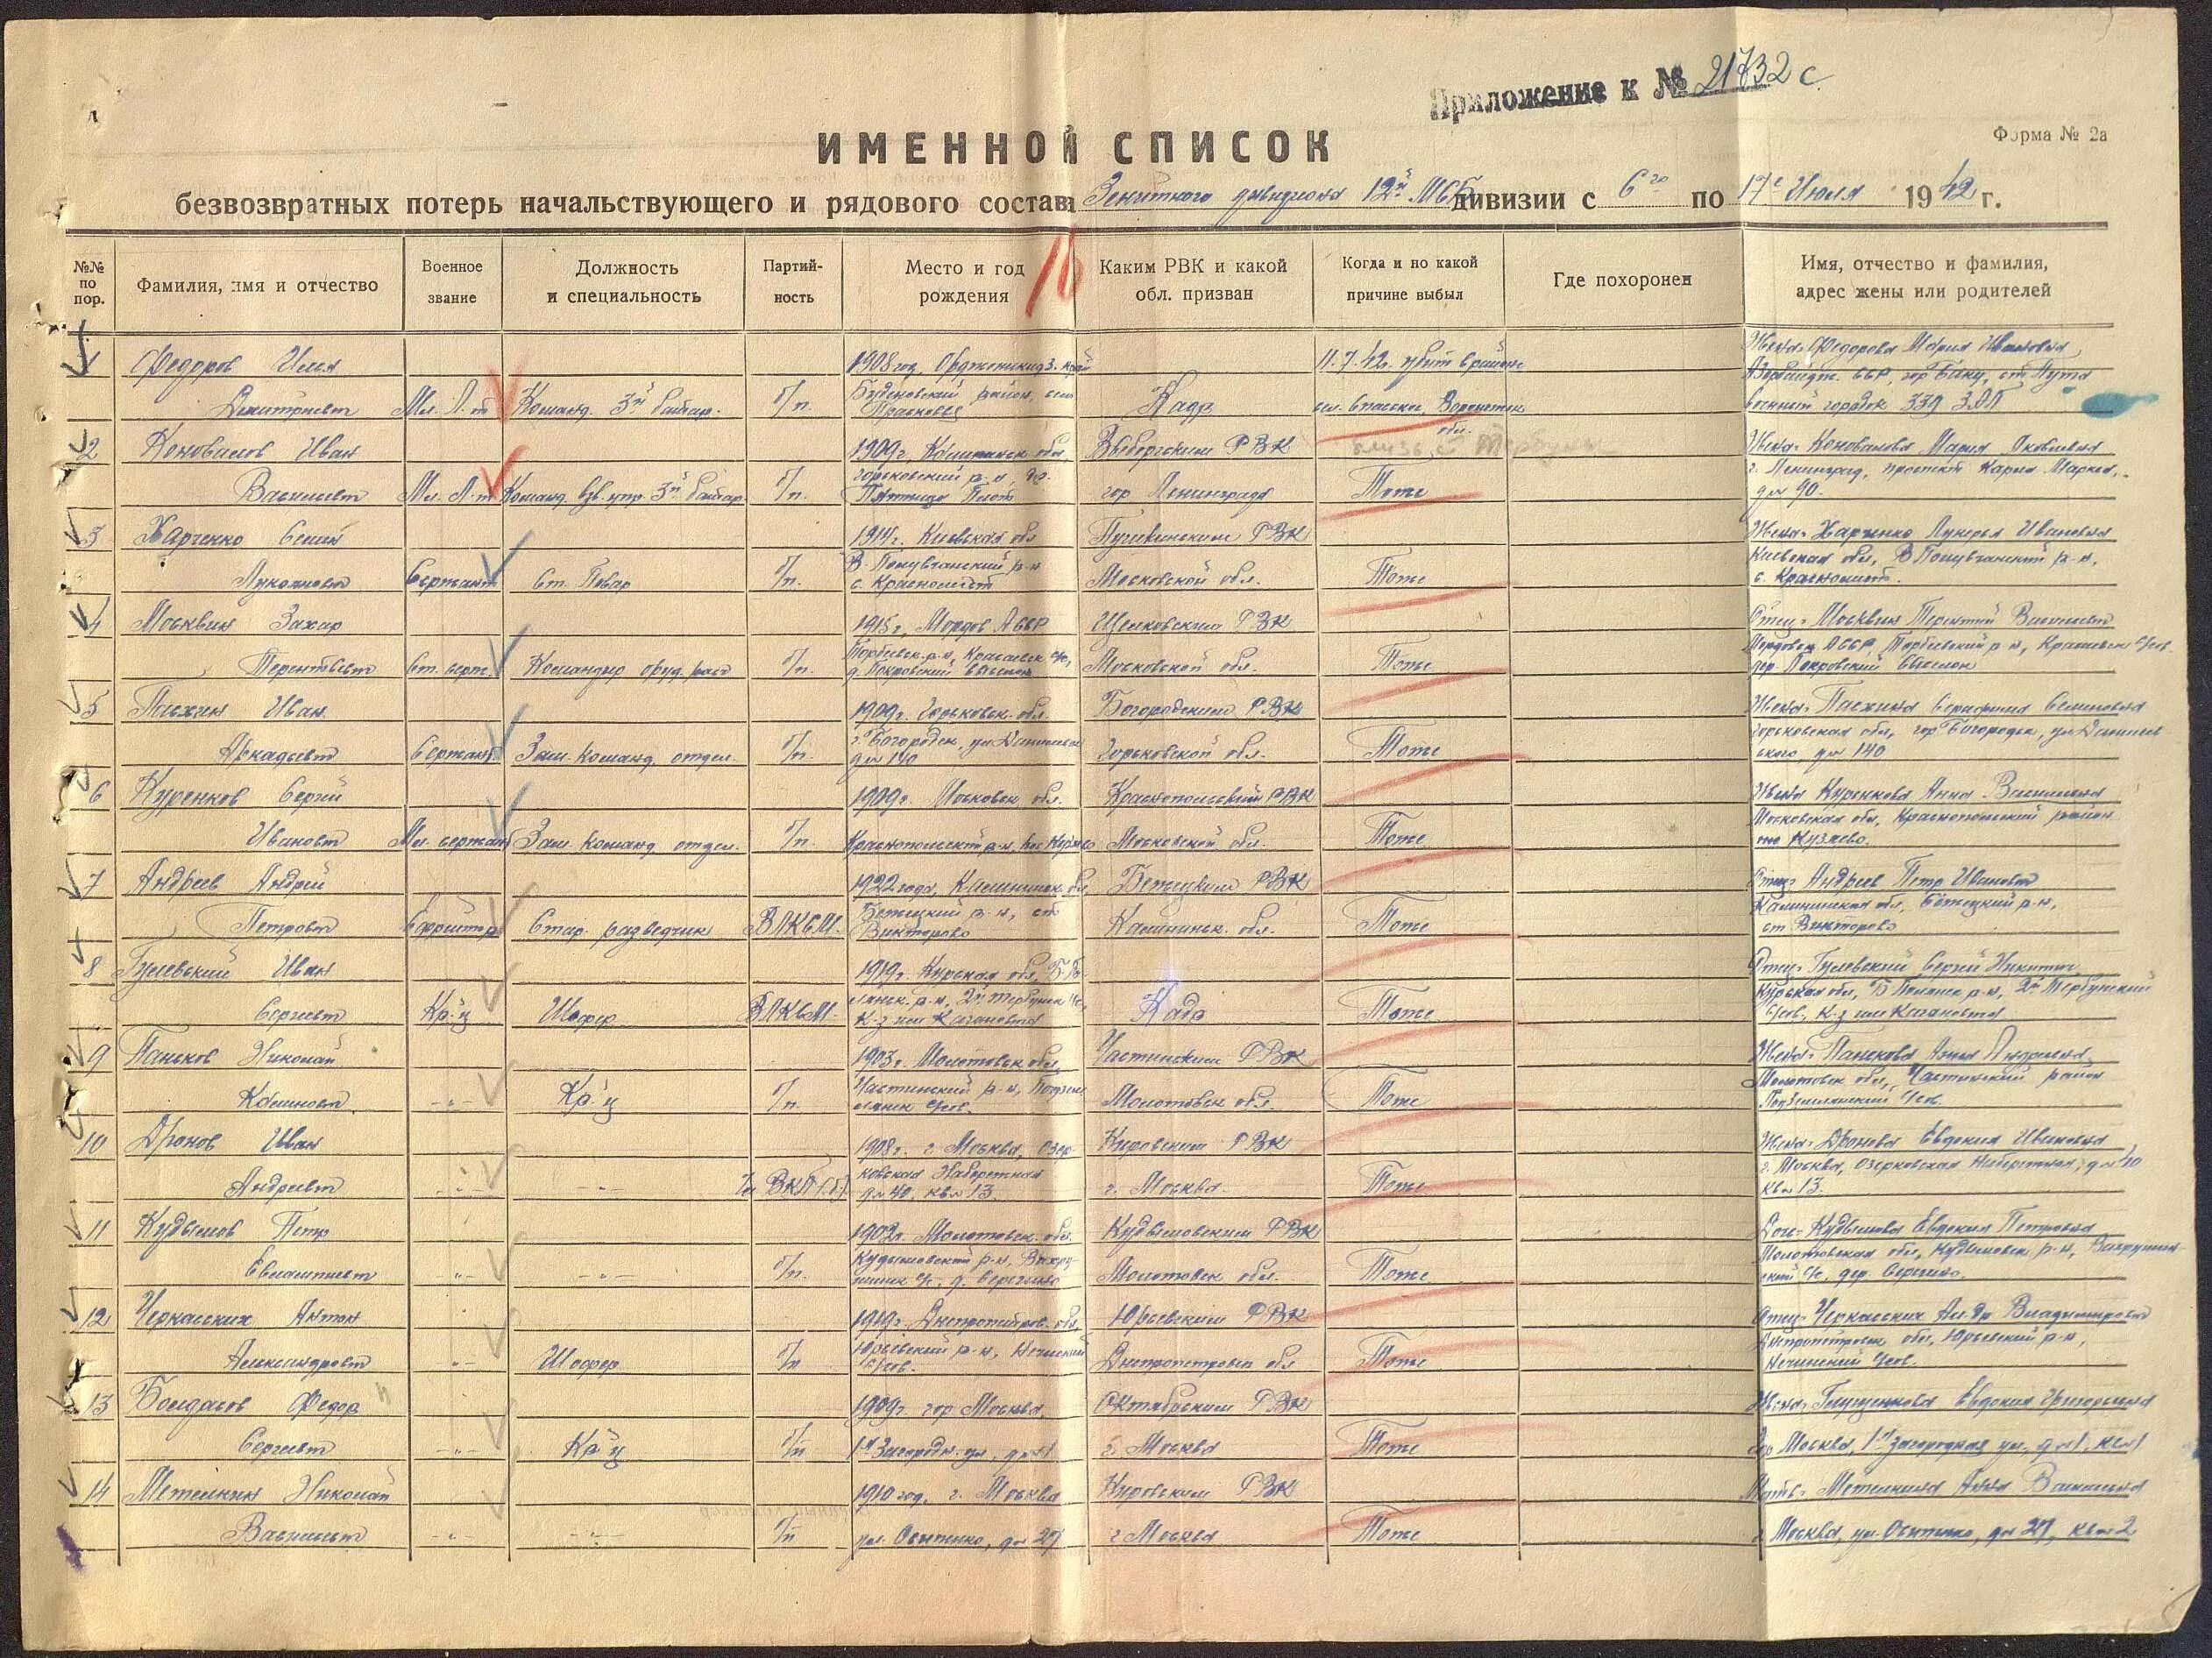 Приложение к № 21732 с
ИМЕННОЙ СПИСОК
Форма № 2а
безвозвратных потерь начальствующего и рядового состава Зенитного дивизиона 12й МСБ дивизии с 6го по 17е Июля 1942 г.
№№ по пор.
Фамилия, имя и отчество
Военное звание
Должность и специальность
Партий-ность
Место и год рождения
16
Каким РВК и какой обл. призван
Когда и по какой причине выбыл
Где похоронен
Имя, отчество и фамилия, адрес жены или родителей
1 Федоров Илья 1908 год Орджоникидз. край 11.7.42г. убит в районе Жена: Федорова Мария Ивановна
Дмитриевич Мл. Л-т Команд. 3й батар. б/п. Буденовский район, село Прасковея Кадр. сел. Спаское, Воронежск. обл. Азербайдж. ССР, гор Баку, ст Пута военный городок 339 ЗАП
близь с Тербуны
2 Коновалов Иван 1909г. Калининск обл, Выборгским РВК Жена: Коновалова Мария Яковлевна
Васильевич Мл. Л-т Команд. взв. упр. 3й батар. б/п. Горьковский р-н, гор Ленинграда Тоже г. Ленинград, проспект Карла Маркса, дом 90.
3 Харченко Семен 1914г. Киевская обл Пушкинским РВК Жена: Харченко Лукерья Ивановна
Лукьянович Сержант Ст. Повар б/п. р-н с. Краснополь Московской обл. Тоже Киевская обл, р-н, с.
4 Москвин Захар 1915г, Мордов АССР Щелковским РВК Отец: Москвин Терентий Васильевич
Терентьевич Ст. серж. Командир оруд. расч б/п. Торбеевск. р-н, д. Покровский выселок Московской обл. Тоже Мордовск АССР, Торбеевский р-н, дер. Покровский выселок
5 Пасхин Иван 1909г. Горьковск. обл. Богородским РВК Жена: Пасхина Серафима Семеновна
Аркадьевич Сержант Зам. команд. отдел. б/п. г. Богородск, ул дом 140 Горьковской обл. Тоже Горьковская обл, гор Богородск, ул дом 140
6 Куренков Сергей 1909г. Московск обл. Краснополянский РВК Жена Куренкова Анна Васильевна
Иванович Мл. сержант Зам. команд. отдел. б/п. Краснополянский р-н, Московской обл. Тоже Московская обл, Краснополянский район Кузяево.
7 Андреев Андрей 1922 года, Калининск обл, Бежецким РВК Отец: Андреев Петр Иванович
Петрович Ефрейтор Стар. разведчик ВЛКСМ. Бежецкий р-н, ст Викторово Калининск. обл. Тоже Калининская обл, Бежецкий р-н, ст Викторово
8 Гулевский Иван 1919г. Курская обл, Б. По- Отец: Гулевский Сергей Никитич
Сергеевич Кр-ц Шофер ВЛКСМ. лянск. р-н, 2й Тербунск с/с, к-з им Кагановича Кадр Тоже Курская обл, Б Полянск р-н, 2й Тербунский с/сов, к-з им Кагановича
9 Паньков Николай 1903г. Молотовск обл, Частинским РВК Жена: Панькова Анна Андреевна
Калинович -"- Кр-ц б/п. Частинский р-н, с/сов. Молотовск обл. Тоже Молотовск обл, Частинский район с/сов.
10 Дронов Иван 1908г. г. Москва, Озер- Кировским РВК Жена: Дронова Евдокия Ивановна
Андреевич -"- -"- ВКП(б) ковская Набережная дом 40, кв 13. г. Москва. Тоже г. Москва, Озерковская Набережная, дом 40 кв 13.
11 Кудымов Петр 1902г. Молотовск. обл. Кудымовским РВК Дочь: Кудымова Евдокия Петровна
-"- -"- б/п. Кудымовский р-н, с/с, д. Молотовск обл. Тоже Молотовская обл, Кудымовск р-н, с/с, дер
12 Черкасских Антон 1919г. Днепропетров. обл, Юрьевским РВК Отец: Черкасских Ал-др Владимирович
Александрович -"- Шофер б/п Юрьевский р-н, с/сов. Днепропетровск обл Тоже Днепропетровск обл, Юрьевский р-н, с/сов.
13 Болдасов Федор 1909г. гор Москва. Октябрьским РВК Жена: Евдокия Григорьевна
Сергеевич -"- Кр-ц б/п 1я Загородн. ул, дом 1 г. Москва Тоже гор Москва, 1я Загородная ул. дом 1, кв 1
14 Метелкин Николай 1910 год, г. Москва Кировским РВК Мать: Метелкина Анна Васильевна
Васильевич -"- -"- б/п ул. Осипенко, дом 27 г Москва Тоже г. Москва, ул. Осипенко, дом 27, кв 2